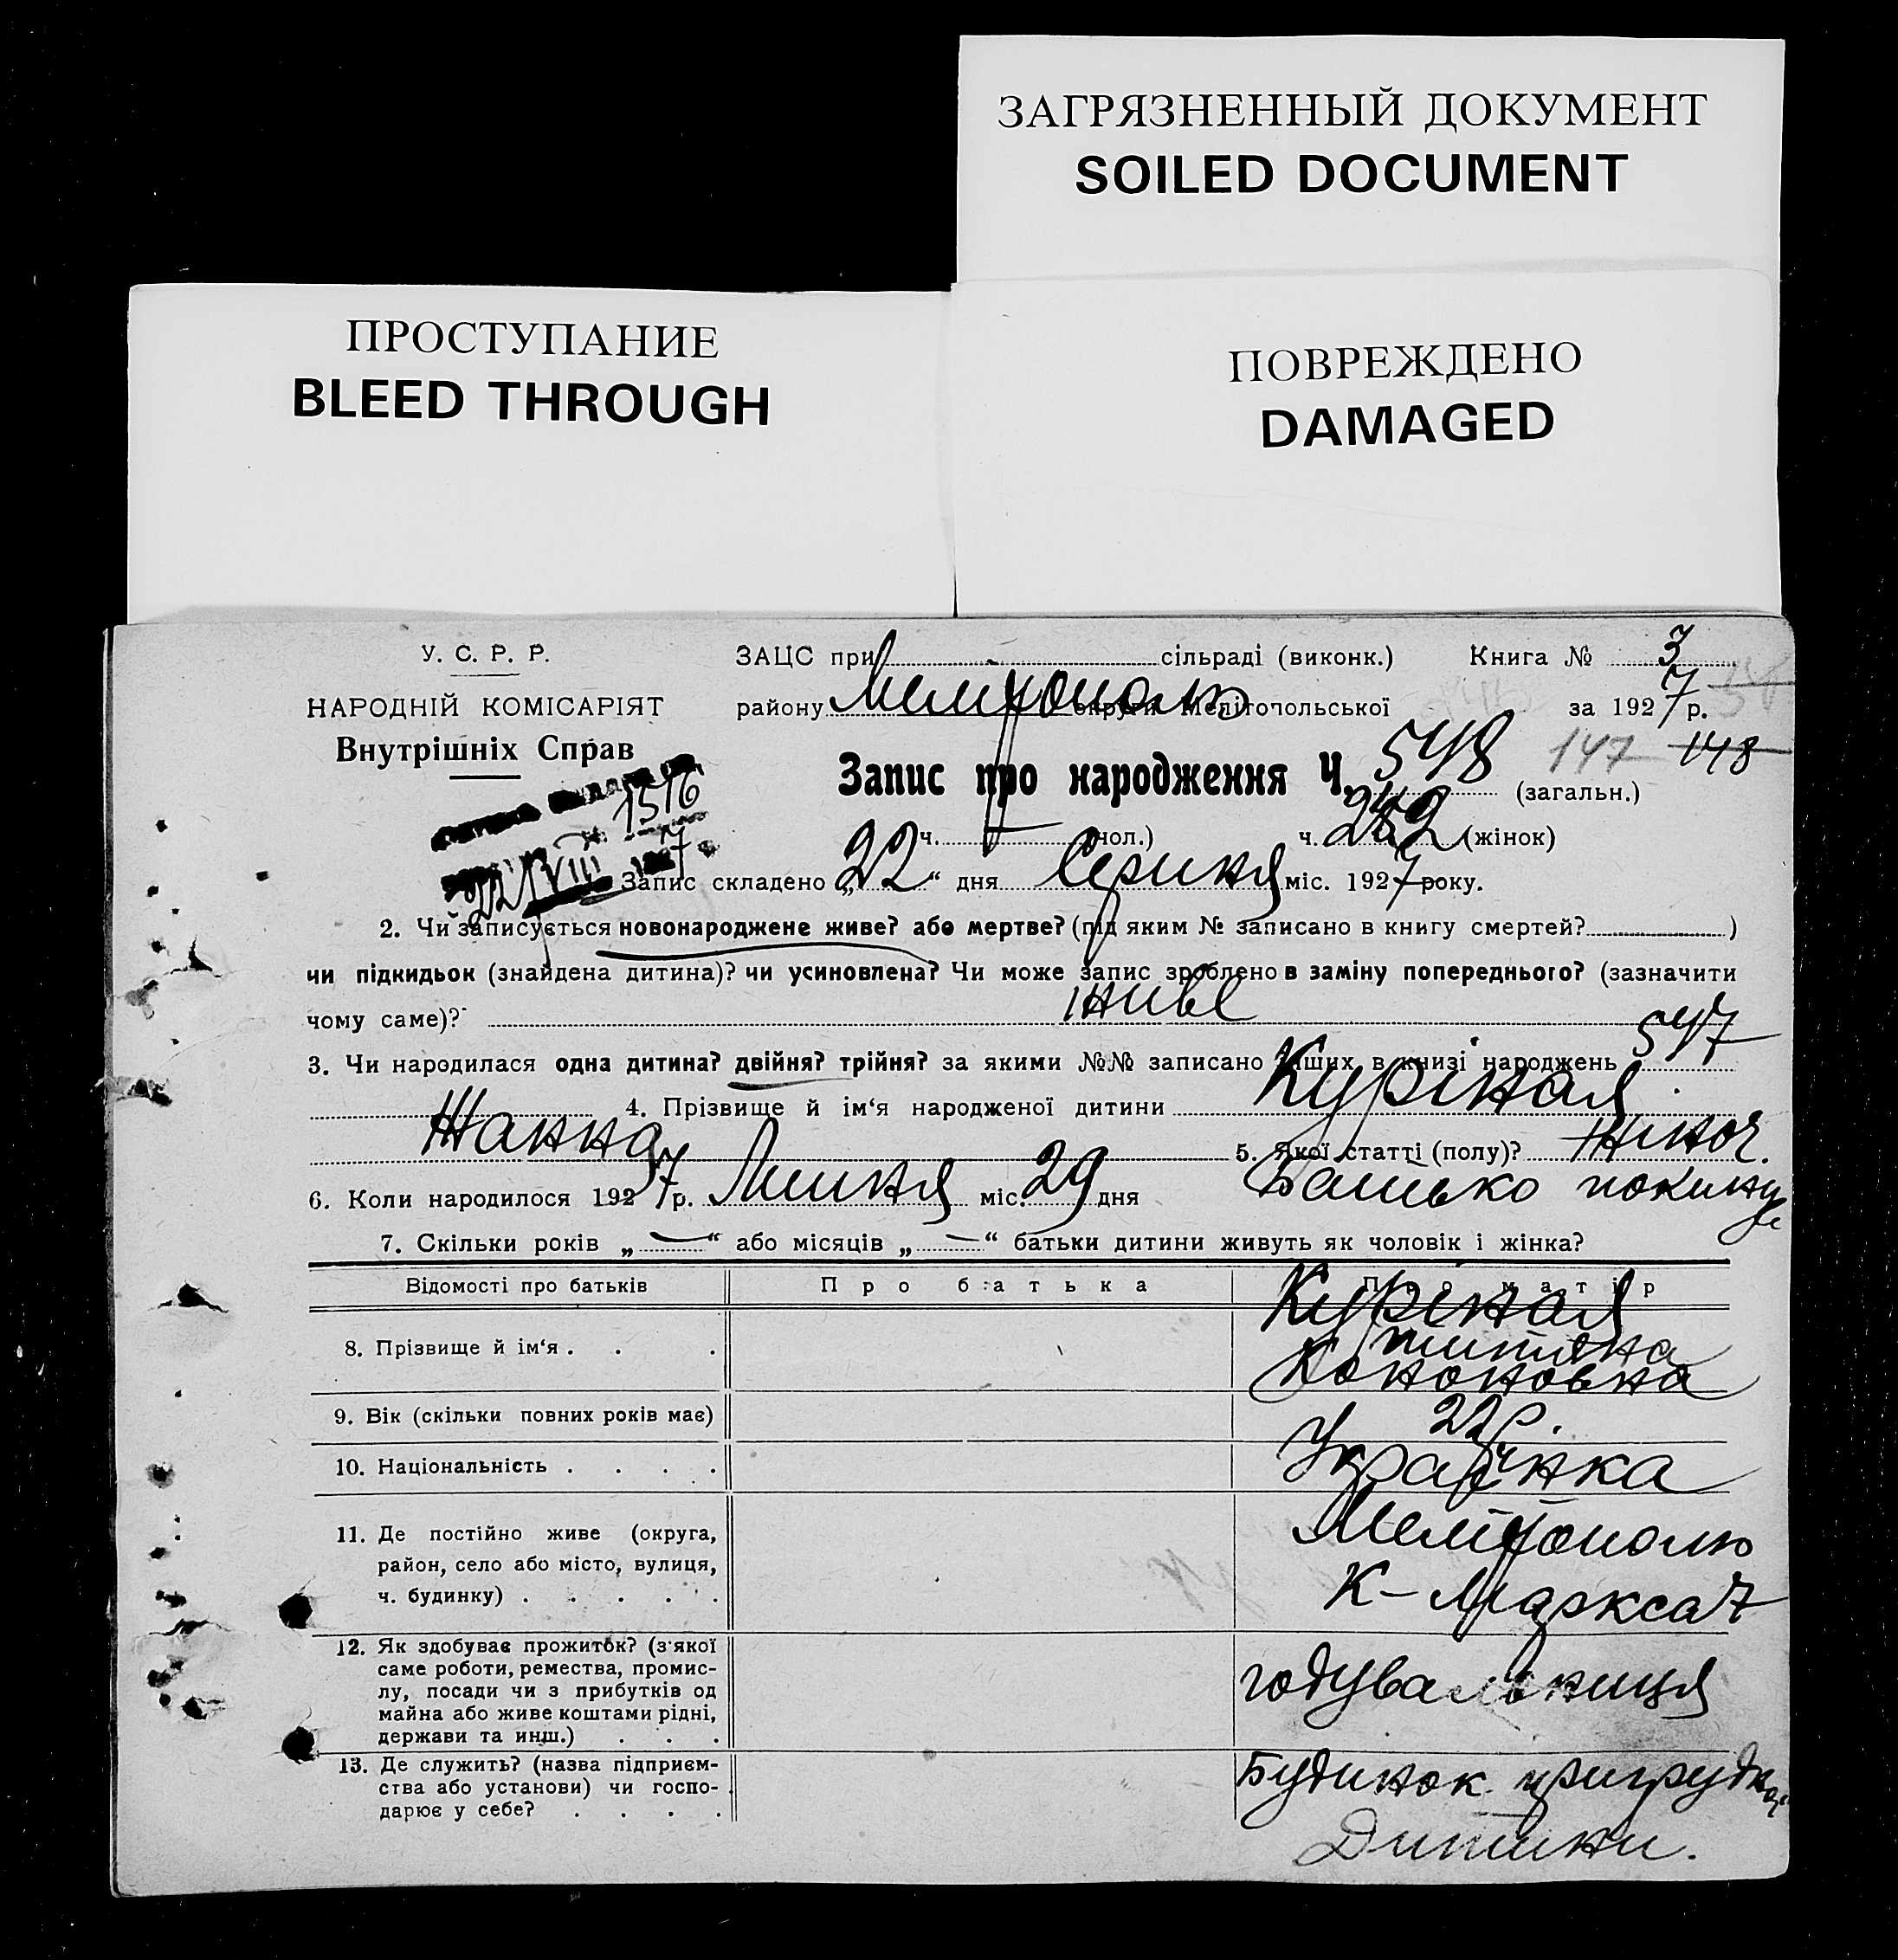 ЗАГРЯЗНЕННЫЙ ДОКУМЕНТ
SOILED DOCUMENT
ПРОСТУПАНИЕ
BLEED THROUGH
ПОВРЕЖДЕНО
DAMAGED
У. С. Р. Р.
НАРОДНІЙ КОМІСАРІЯТ
Внутрішніх Справ
ЗАЦС при сільраді (виконк.) Книга № 3
району Мелітополь округи Мелітопольської за 1927 р.
147 148
Запис про народження Ч. 548 (загальн.)
ч. чол.) ч. 252 (жінок)
1516
22 VIII 1927
Запис складено „22“ дня Серпня міс. 1927 року.
2. Чи записується новонароджене живе? або мертве? (під яким № записано в книгу смертей? )
чи підкидьок (знайдена дитина)? чи усиновлена? Чи може запис зроблено в заміну попереднього? (зазначити
чому саме)? живе
3. Чи народилася одна дитина? двійня? трійня? за якими №№ записано інших в книзі народжень 547
4. Прізвище й ім'я народженої дитини Куріная
Жанна 5. Якої статті (полу)? жіноч.
6. Коли народилося 1927 р. Липня міс. 29 дня Батько покинув
7. Скільки років „—“ або місяців „—“ батьки дитини живуть як чоловік і жінка?
Відомості про батьків Про батька Про матір
8. Прізвище й ім'я . . . Куріная
Кононовна
9. Вік (скільки повних років має) 22 р.
10. Національність . . . . Українка
11. Де постійно живе (округа,
район, село або місто, вулиця,
ч. будинку) . . . . .
Мелітополь
К-Маркса 7
12. Як здобуває прожиток? (з якої
саме роботи, ремества, промис-
лу, посади чи з прибутків од
майна або живе коштами рідні,
держави та инш.) . . .
годувальниця
13. Де служить? (назва підприєм-
ства або установи) чи госпо-
дарює у себе? . . . .
Будинок
Дитини.